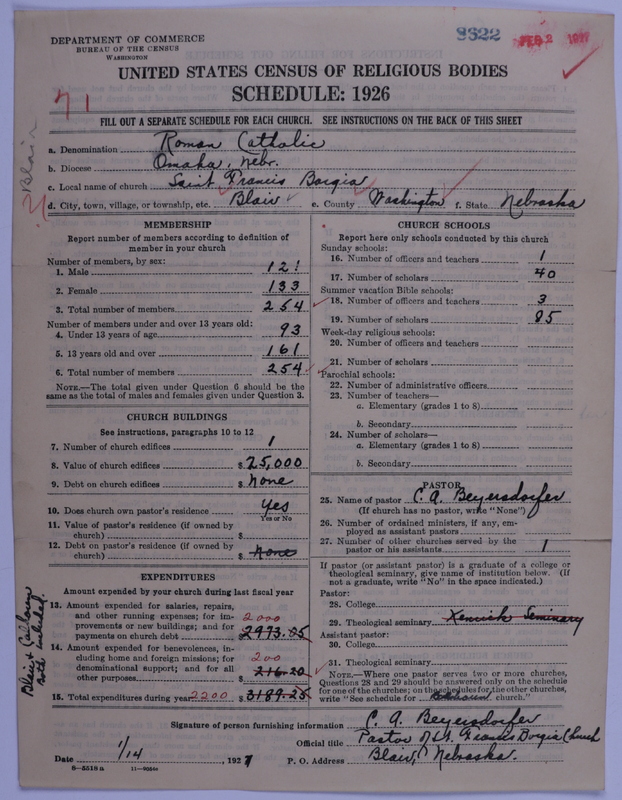 DEPARTMENT OF COMMERCE
BUREAU OF THE CENSUS
WASHINGTON
8622
FEB 2 1927
UNITED STATES CENSUS OF RELIGIOUS BODIES
SCHEDULE: 1926
71
FILL OUT A SEPARATE SCHEDULE FOR EACH CHURCH. SEE INSTRUCTIONS ON THE BACK OF THIS SHEET
Blair
a. Denomination Roman Catholic
b. Diocese Omaha, Nebr.
c. Local name of church Saint Francis Borgia
d. City, town, village, or township, etc. Blair e. County Washington f. State Nebraska
MEMBERSHIP
Report number of members according to definition of
member in your church
Number of members, by sex:
1. Male 121
2. Female 133
3. Total number of members 254
Number of members under and over 13 years old:
4. Under 13 years of age 93
5. 13 years old and over 161
6. Total number of members 254
NOTE.—The total given under Question 6 should be
the same as the total of males and females given under Question 3.
CHURCH BUILDINGS
See instructions, paragraphs 10 to 12
7. Number of church edifices 1
8. Value of church edifices $25,000
9. Debt on church edifices $ None
10. Does church own pastor's residence Yes
Yes or No
11. Value of pastor's residence (if owned by
church) $
12. Debt on pastor's residence (if owned by
church) $ None
EXPENDITURES
Amount expended by your church during last fiscal year
13. Amount expended for salaries, repairs,
and other running expenses; for im-
provements or new buildings; and for
payments on church debt 2000 $2973.05
14. Amount expended for benevolences, in-
cluding home and foreign missions; for
denominational support; and for all
other purposes 200 $216.20
15. Total expenditures during year 2200 $3189.25
Blair & Calhoun
both included.
CHURCH SCHOOLS
Report here only schools conducted by this church
Sunday schools:
16. Number of officers and teachers 1
17. Number of scholars 40
Summer vacation Bible schools:
18. Number of officers and teachers 3
19. Number of scholars 85
Week-day religious schools:
20. Number of officers and teachers
21. Number of scholars
Parochial schools:
22. Number of administrative officers
23. Number of teachers—
a. Elementary (grades 1 to 8)
b. Secondary
24. Number of scholars—
a. Elementary (grades 1 to 8)
b. Secondary
PASTOR
25. Name of pastor C. A. Beyersdorfer
(If church has no pastor, write "None")
26. Number of ordained ministers, if any, em-
ployed as assistant pastors
27. Number of other churches served by the
pastor or his assistants 1
If pastor (or assistant pastor) is a graduate of a college or
theological seminary, give name of institution below. (If
not a graduate, write "No" in the space indicated.)
Pastor:
28. College
29. Theological seminary Kenrick Seminary
Assistant pastor:
30. College
31. Theological seminary
NOTE.—Where one pastor serves two or more churches,
Questions 28 and 29 should be answered only on the schedule
for one of the churches; on the schedules for the other churches,
write "See schedule for Calhoun church."
Signature of person furnishing information C. A. Beyersdorfer
Official title Pastor of St. Francis Borgia Church
Date 1/14 1927 P. O. Address Blair, Nebraska.
8-5518a 11-9054a